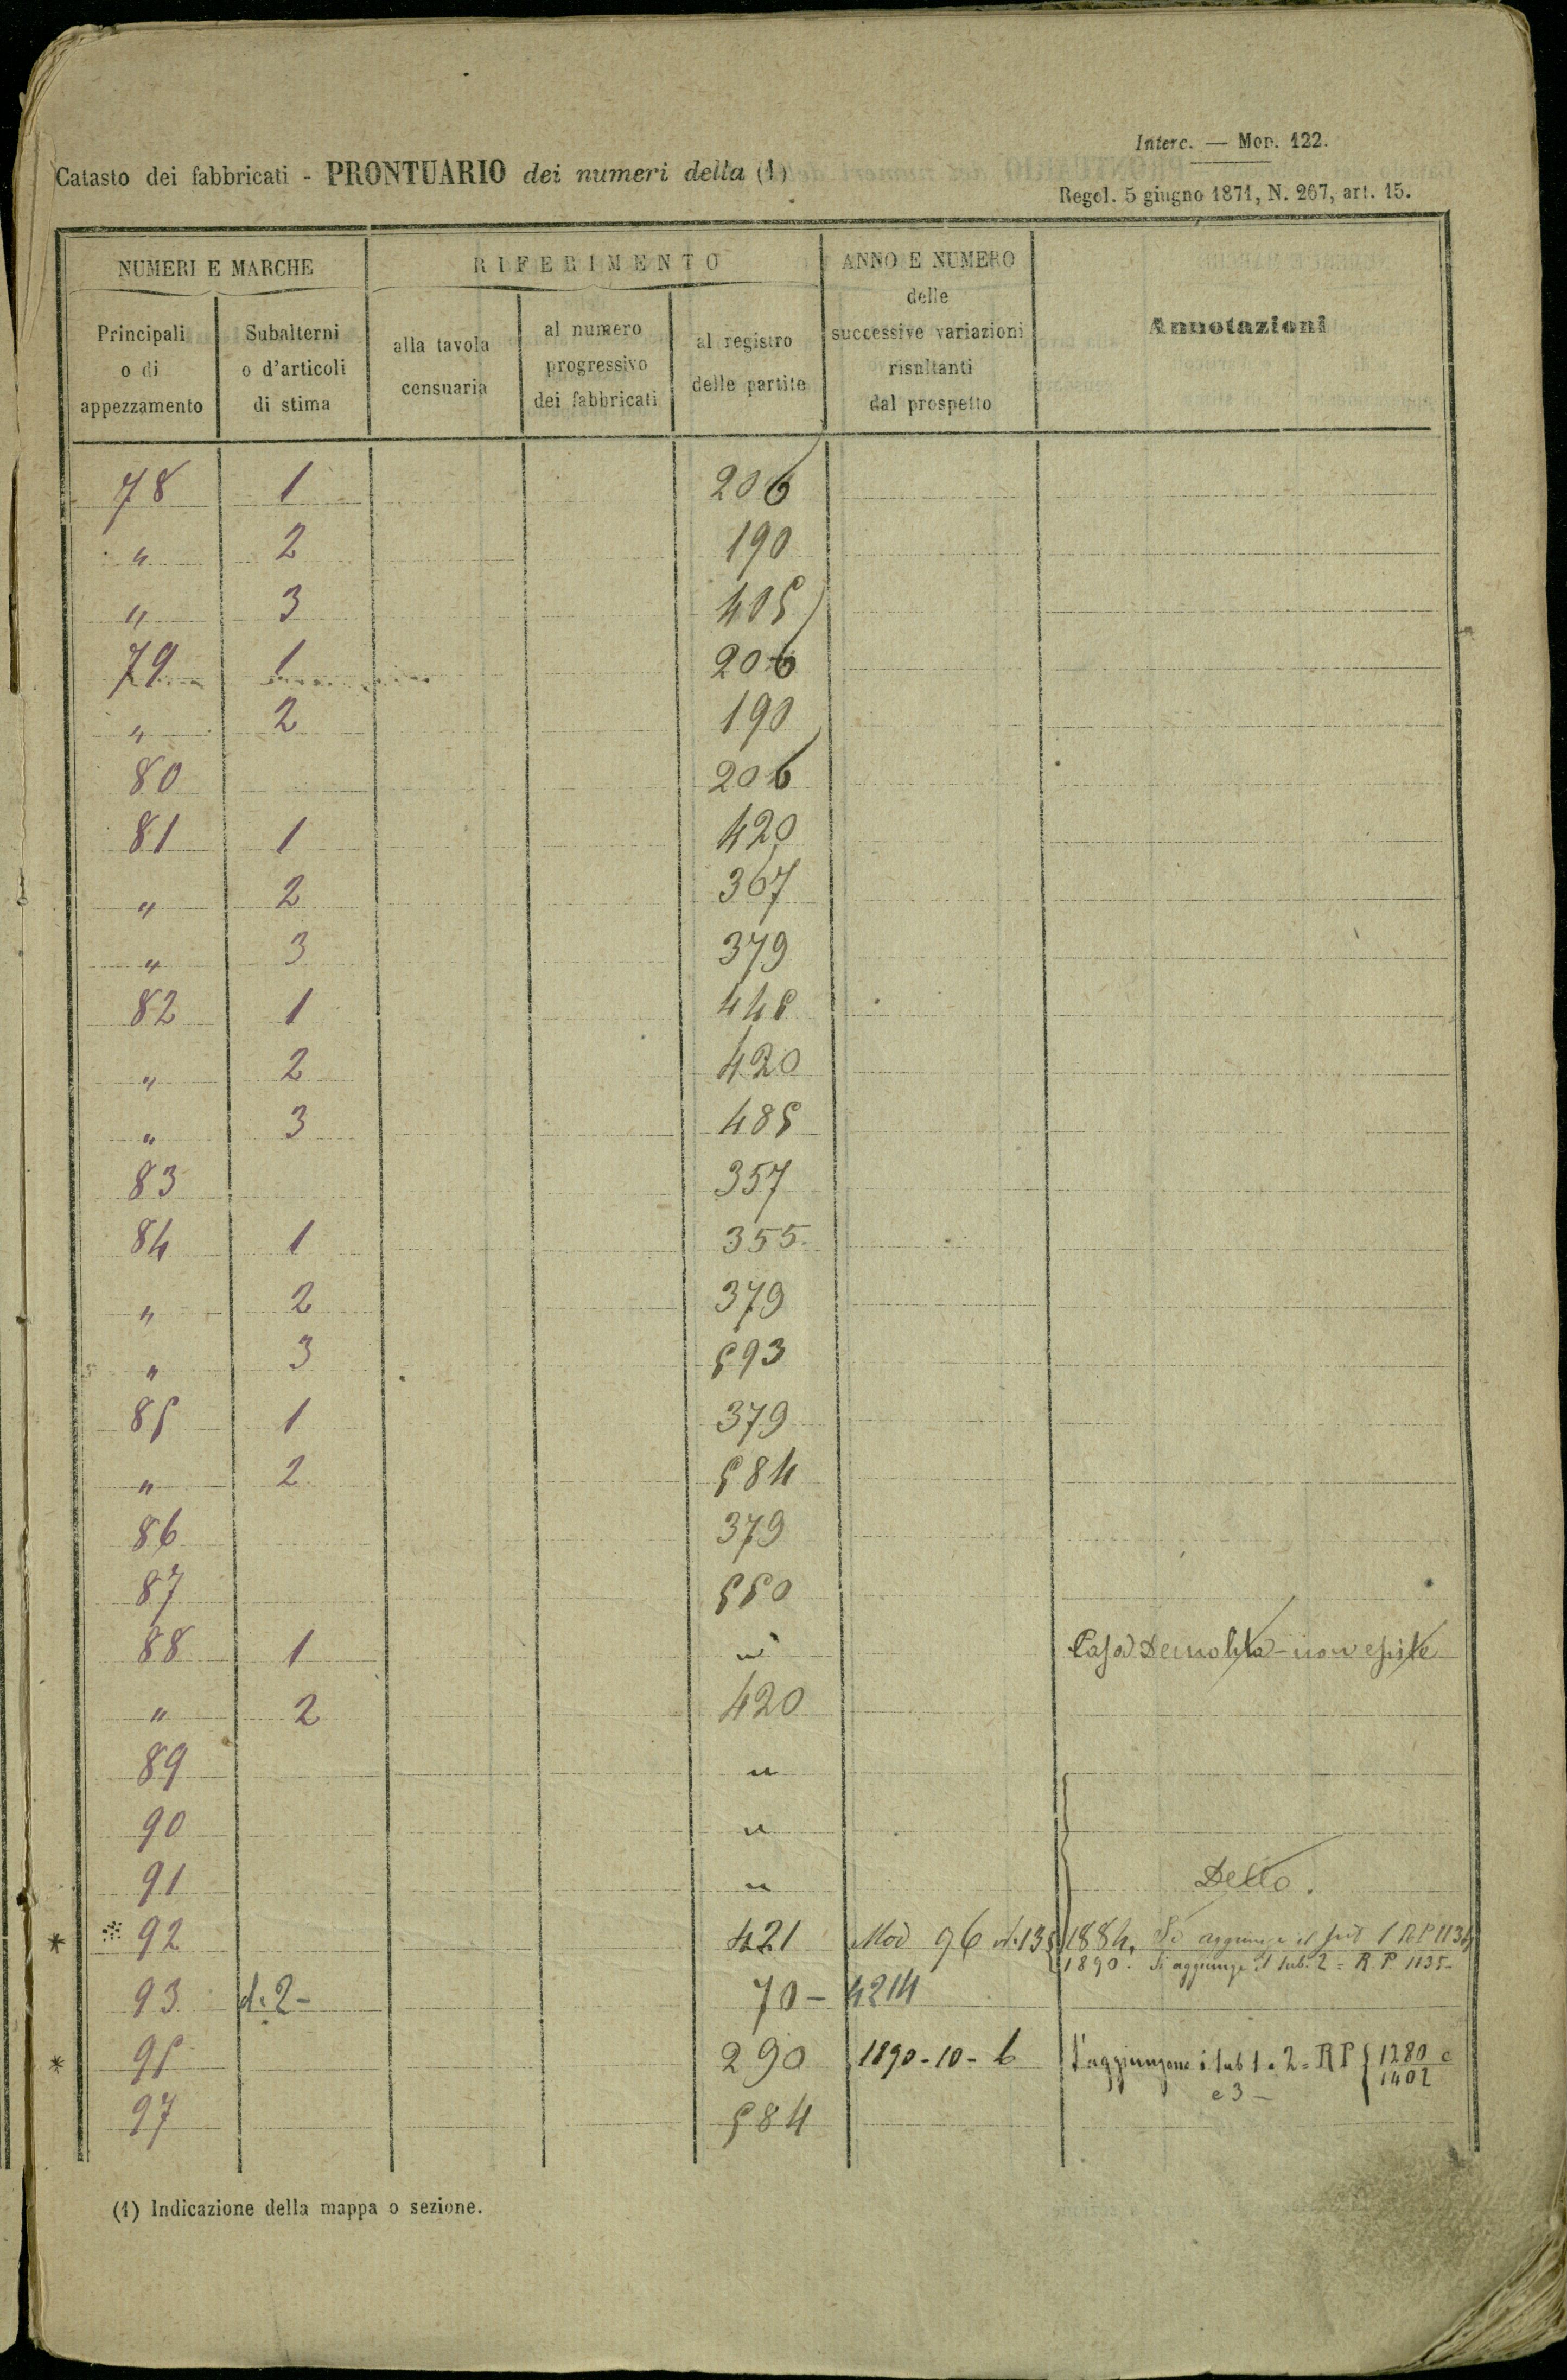 Interc. — Mod. 122.
Catasto dei fabbricati - PRONTUARIO dei numeri della (1)
Regol. 5 giugno 1871, N. 267, art. 15.
NUMERI E MARCHE RIFERIMENTO ANNO E NUMERO delle successive variazioni risultanti dal prospetto Annotazioni
Principali o di appezzamento Subalterni o d'articoli di stima alla tavola censuaria al numero progressivo dei fabbricati al registro delle partite
78 1 206
" 2 190
" 3 405
79 1 206
" 2 190
80 206
81 1 420
" 2 367
" 3 379
82 1 445
" 2 420
" 3 485
83 357
84 1 355
" 2 379
" 3 593
85 1 379
" 2 584
86 379
87 550
88 1 " Casa Demolita - non esiste
" 2 420
89 "
90 "
91 " Detto.
* 92 421 Mod 96 n. 135 1884. Si aggiunge il sub 1 R.P 1134
1890. Si aggiunge il sub. 2 = R. P. 1135-
93 d. 2- 70 - 4214
* 95 290 1890-10-6 S'aggiungono i sub 1. 2 = RP { 1280 e
e 3 - 1402
97 584
(1) Indicazione della mappa o sezione.